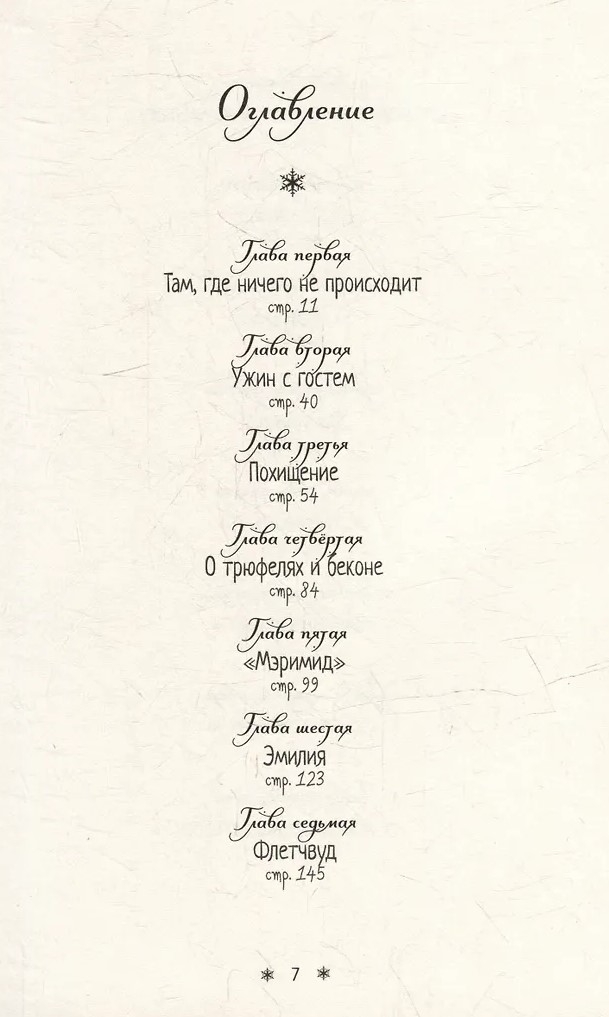 Оглавление
Глава первая
Там, где ничего не происходит
стр. 11
Глава вторая
Ужин с гостем
стр. 40
Глава третья
Похищение
стр. 54
Глава четвёртая
О трюфелях и беконе
стр. 84
Глава пятая
«Мэримид»
стр. 99
Глава шестая
Эмилия
стр. 123
Глава седьмая
Флетчвуд
стр. 145
7